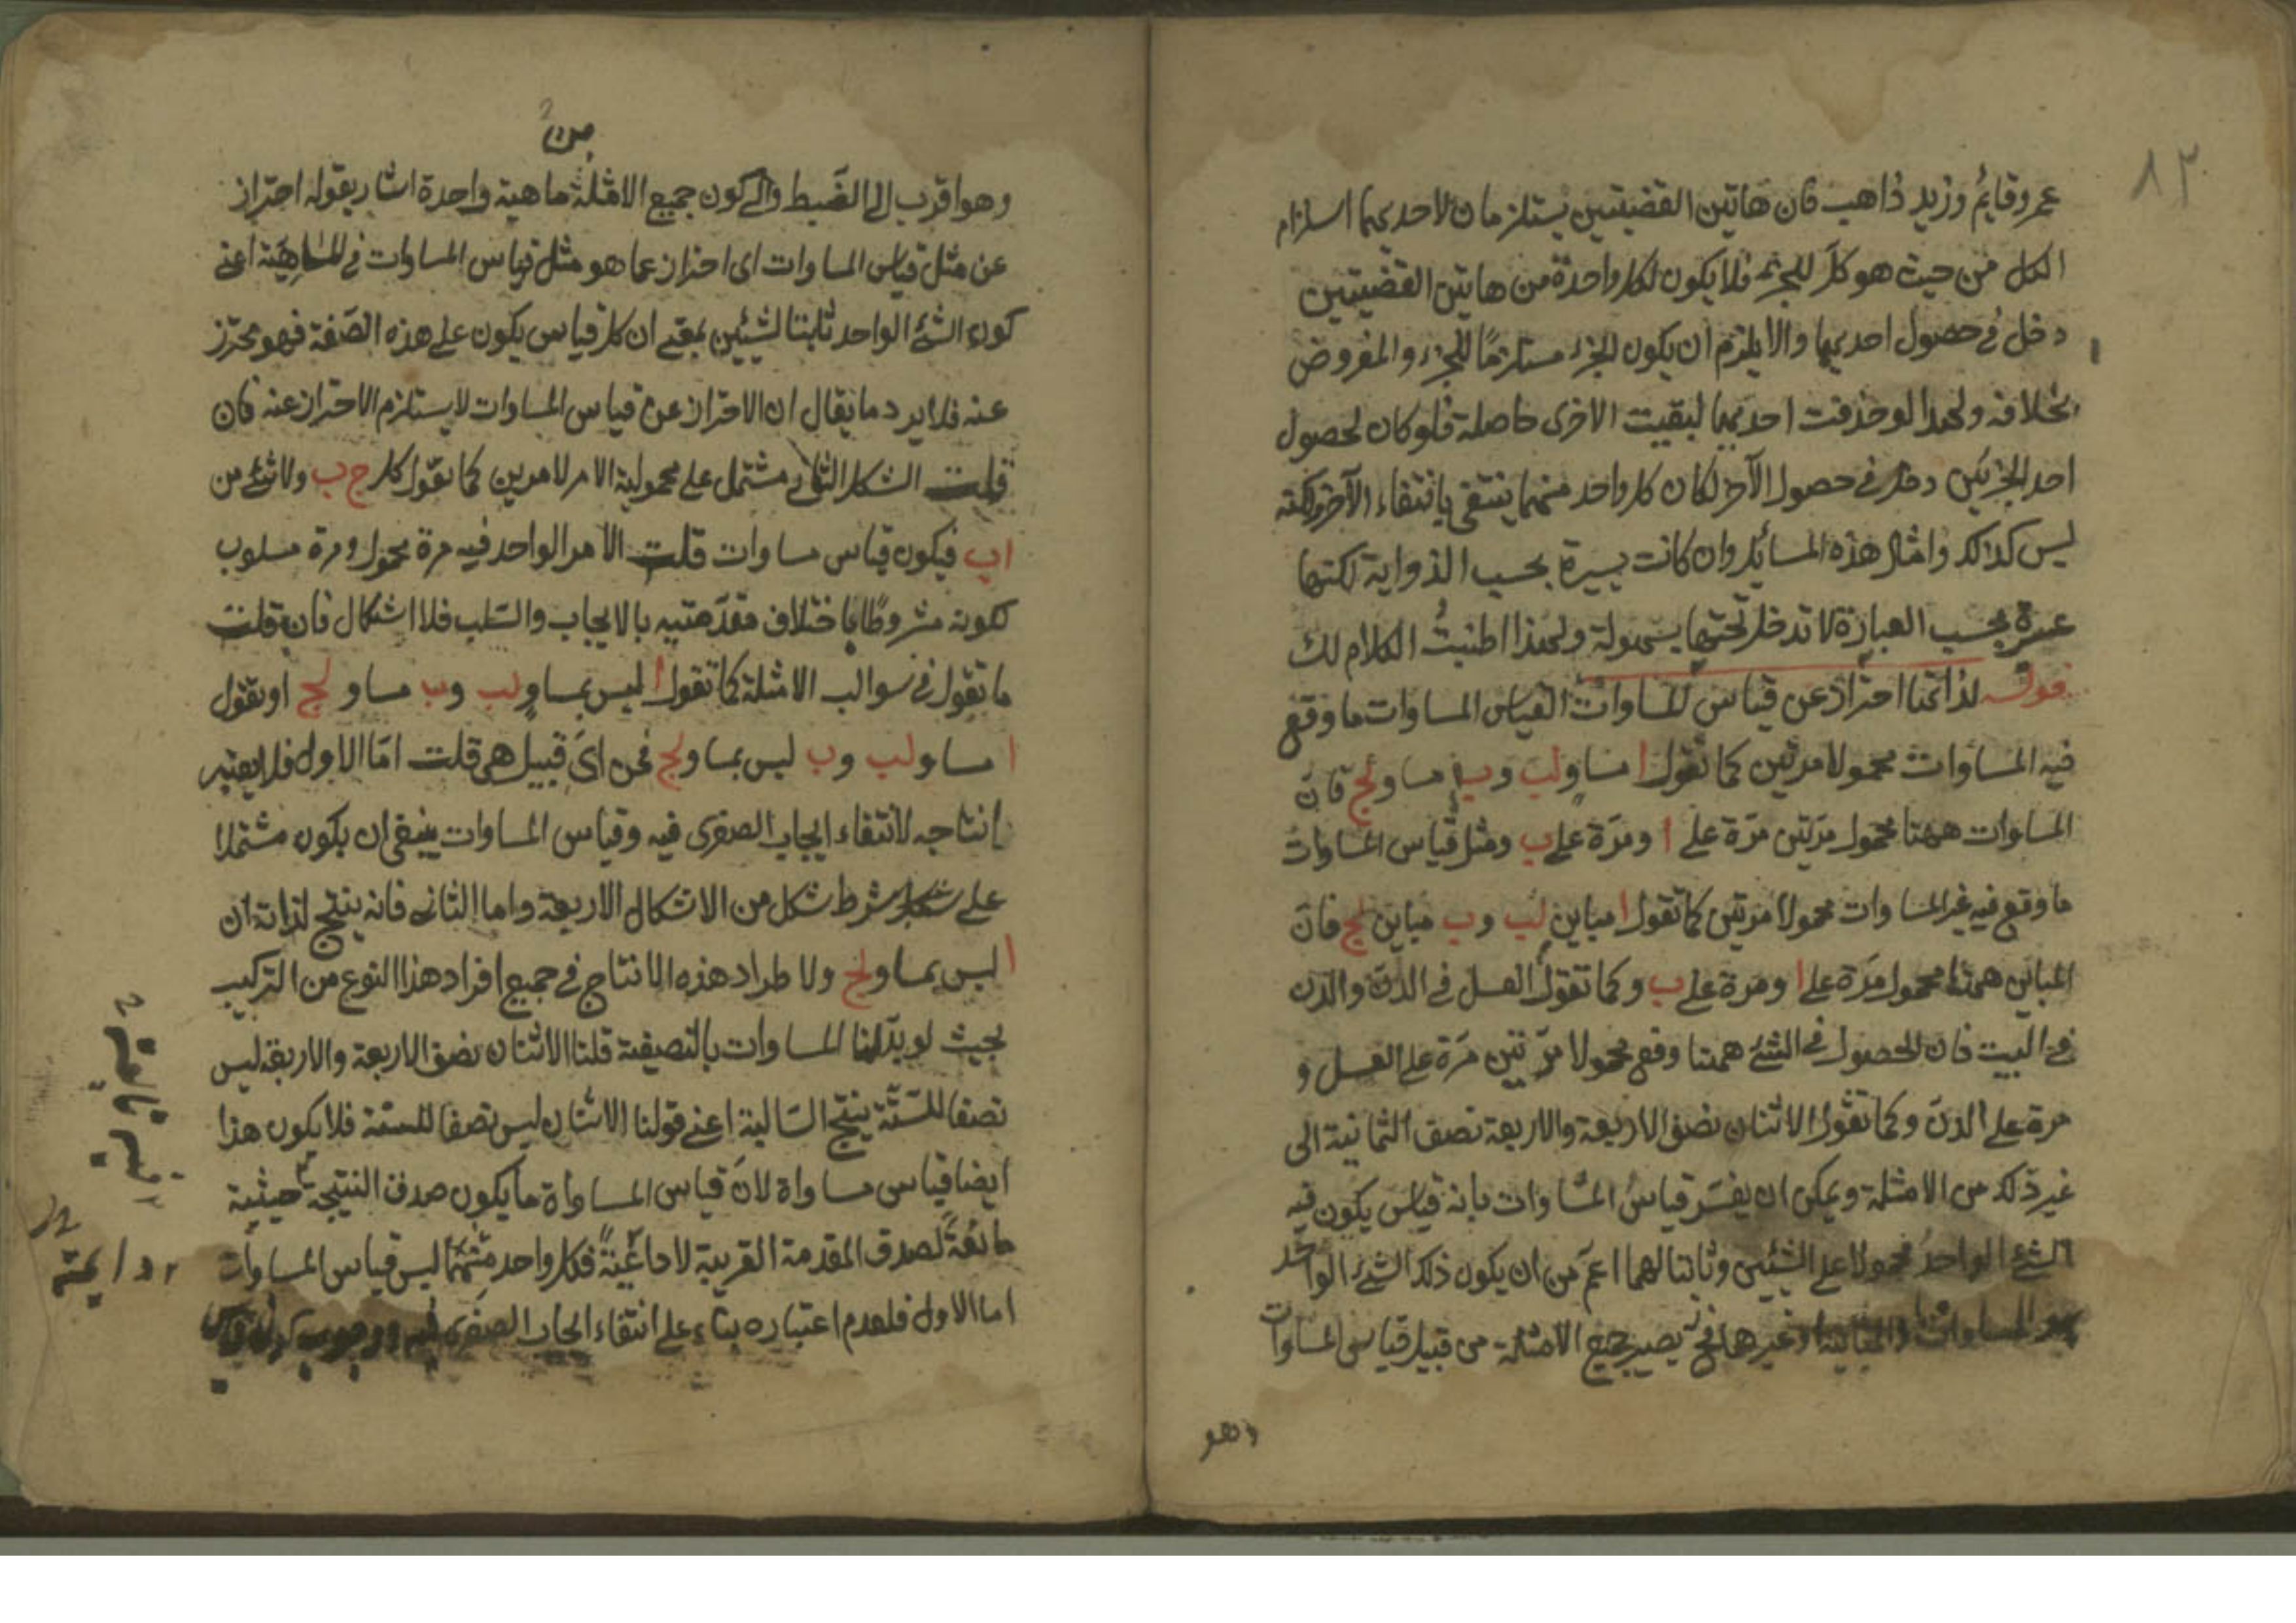 ٨٢
عمرو قايمٌ وزيد ذاهب فان هاتين القضيتين يستلزمان لاحديهما استلزام
الكل من حيث هو كلّ للجزء فلا يكون لكل واحدة من هاتين القضيتين
دخل في حصول احديهما والا يلزم ان يكون الجزء مستلزمًا للجزء والمفروض
بخلافه ولهذا لو حذفت احديهما لبقيت الاخرى حاصلة فلو كان لحصول
احد الجزئين دخل في حصول الآخر لكان كل واحد منهما ينتفى بانتفاء الآخر ولكنه
ليس كذلك وامثال هذه المسائل وان كانت يسيرة بحسب الذواية لكنها
عسرة بحسب العبارة لا تدخل تحتها بسهولة ولهذا اطنبتُ الكلام لك
قوله لذاتها احتراز عن قياس المساوات القياس المساوات ما وقع
فيه المساوات محمولا مرتين كما تقول ا مساو لب وب مساو لج فانّ
المساوات ههنا محمول مرّتين مرّة على ا ومرّة على ب ومثل قياس المساوات
ما وقع فيه غير المساوات محمولا مرتين كما تقول ا مباين لب وب مباين لج فانّ
المباين ههنا محمول مرّة على ا ومرة على ب وكما تقول العسل في الدنّ والدن
في البيت فان الحصول في الشئ ههنا وقع محمولا مرّتين مرّة على العسل و
مرة على الدنّ وكما تقول الاثنان نصف الاربعة والاربعة نصف الثمانية الى
غير ذلك من الامثلة ويمكن ان يفسّر قياسُ المساوات بانه قياس يكون فيه
الشئ الواحدُ محمولا على الشيئين وثابتا لهما اعمّ من ان يكون ذلك الشئ الواحد
هو المساوات والمباينة او غيرهما فح يصير جميع الامثلة من قبيل قياس المساوات
وهو
وهو اقرب الى الضبط والى كون جميع الامثلة ماهية واحدة اشار بقوله احتراز
عن مثل قياس المساوات اى احتراز عما هو مثل قياس المساوات في الماهيّة اعنى
كون الشئ الواحد ثابتا لشيئين بمعنى ان كل قياس يكون على هذه الصّفة فهو محترز
عنه فلا يرد ما يقال ان الاحتراز عن قياس المساوات لا يستلزم الاحتراز عنه فان
قلت الشكل الثانى مشتمل على محمولية الامر لامرين كما نقول كل ج ب ولا شئ من
ا ب فيكون قياس مساوات قلت الامر الواحد فيه مرة محمول ومرة مسلوب
لكونه مشروطًا باختلاف مقدّمتيه بالايجاب والسّلب فلا اشكال فان قلت
ما تقول في سوالب الامثلة كما تقول ا ليس بمساو لب وب مساو لج او نقول
ا مساو لب وب ليس بمساو لج فمن اىّ قبيل هى قلت امّا الاول فلا يعتبر
انتاجه لانتفاء ايجاب الصغرى فيه وقياس المساوات ينبغى ان يكون مشتملا
على شكل بشرط شكل من الاشكال الاربعة واما الثانى فانه ينتج لذاته ان
ا ليس بمساو لج ولا طراد هذه الانتاج في جميع افراد هذا النوع من التركيب
بحيث لو بدّلنا المساوات بالنصيفية قلنا الاثنان نصف الاربعة والاربعة ليس
نصفا للستّة ينتج السّالبة اعنى قولنا الاثنان ليس نصفا للستة فلا يكون هذا
ايضا قياس مساواة لانّ قياس المساواة ما يكون صدق النتيجة حيثية
لصدق المقدمة القريبة فكل واحد منهما ليس قياس المساوات
اما الاول فلعدم اعتباره بناء على انتفاء ايجاب الصغرى فيه ووجوب كون قياس